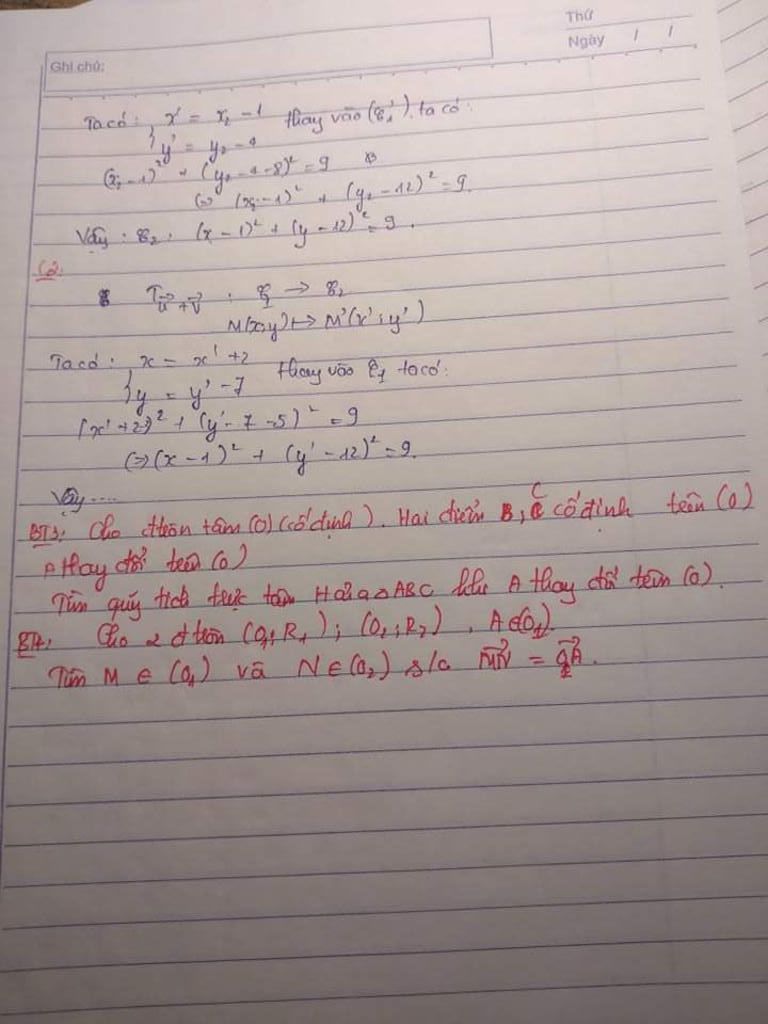 Thứ
Ngày / /
Ghi chú:
Ta có: x' = x₂ - 1 thay vào (ξ₁'), ta có:
y' = y₂ - 4
(x₂ - 1)² + (y₂ - 4 - 8)² = 9
(=) (x₂ - 1)² + (y₂ - 12)² = 9.
Vậy: ξ₂: (x - 1)² + (y - 12)² = 9.
C2:
T u⃗ + v⃗ : ξ₁ → ξ₂
M(x;y) ↦ M'(x'; y')
Ta có: x = x' + 2
y = y' - 7 thay vào ξ₁ ta có:
(x' + 2)² + (y' - 7 - 5)² = 9
(=) (x - 1)² + (y' - 12)² = 9.
Vậy....
BT3: Cho đtròn tâm (O) (cố định). Hai điểm B, C cố định trên (O)
A thay đổi trên (O)
Tìm quỹ tích trực tâm H của △ABC khi A thay đổi trên (O).
BT4: Cho 2 đtròn (O₁; R₁); (O₂; R₂), A ∈ (O₁).
Tìm M ∈ (O₁) và N ∈ (O₂) s/c MN⃗ = A⃗.